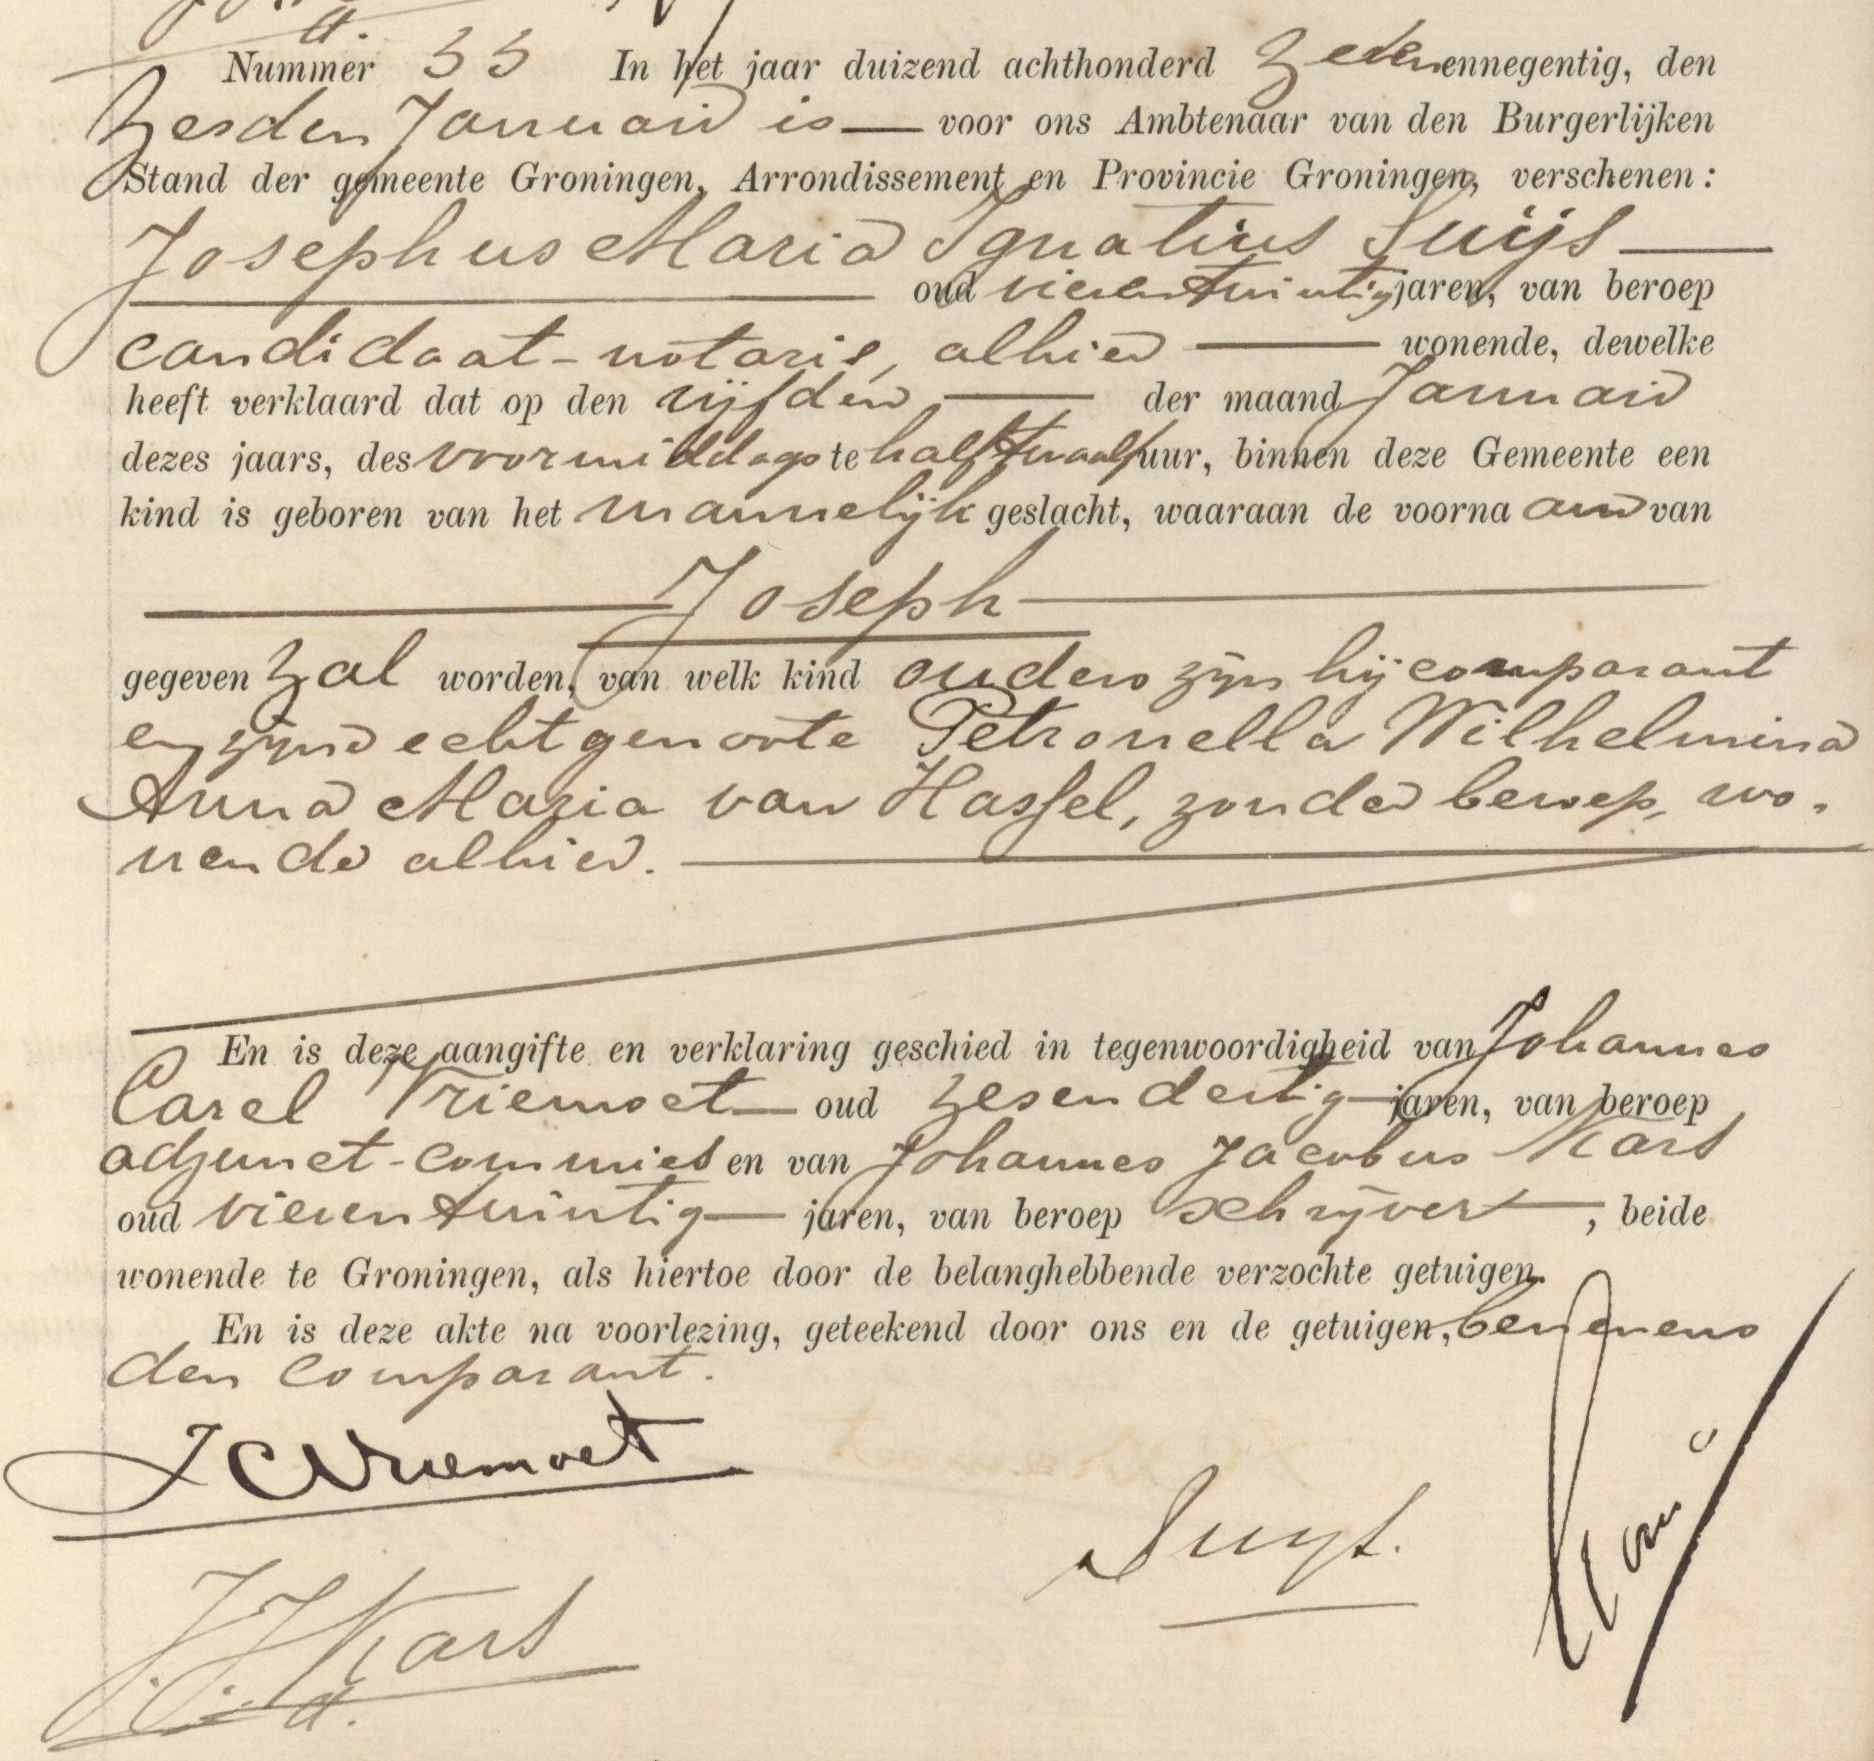 Nummer 33 In het jaar duizend achthonderd zevenennegentig, den
zesden Januari is voor ons Ambtenaar van den Burgerlijken
Stand der gemeente Groningen, Arrondissement en Provincie Groningen, verschenen:
Josephus Maria Ignatius Suijs
oud vierentwintig jaren, van beroep
candidaat-notaris, alhier wonende, dewelke
heeft verklaard dat op den vijfden der maand Januari
dezes jaars, des voormiddags te half twaalf uur, binnen deze Gemeente een
kind is geboren van het mannelijk geslacht, waaraan de voornaam van
Joseph
gegeven zal worden, van welk kind ouders zijn hij comparant
en zijne echtgenoote Petronella Wilhelmina
Anna Maria van Hassel, zonder beroep, wo-
nende alhier.
En is deze aangifte en verklaring geschied in tegenwoordigheid van Johannes
Carel Vriemoet oud zesendertig jaren, van beroep
adjunct-commies en van Johannes Jacobus Kars
oud vierentwintig jaren, van beroep schrijver, beide
wonende te Groningen, als hiertoe door de belanghebbende verzochte getuigen.
En is deze akte na voorlezing, geteekend door ons en de getuigen, benevens
den comparant.
JCVriemoet
Suys.
J.J. Kars